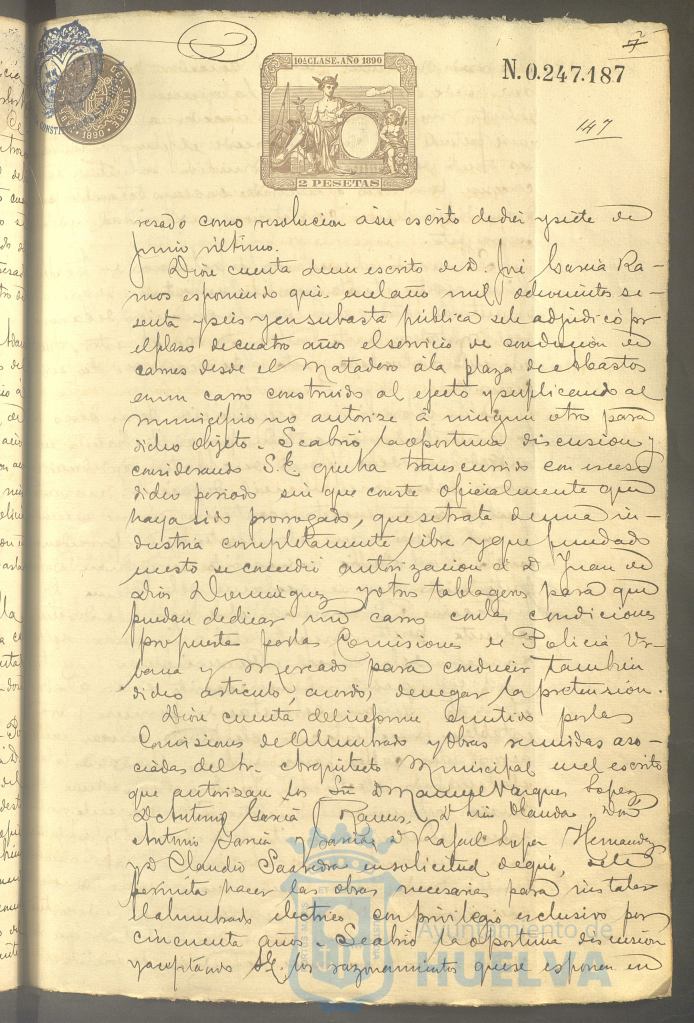 10ª CLASE.-AÑO 1890
N.0.247.187
TIMBRE
1890
2 PESETAS
7
147
resado como resolucion a su escrito de diez y siete de
Junio último.
Diose cuenta de un escrito de D. José Garcia Ra-
mos esponiendo que en el año mil ochocientos se-
senta y seis y en subasta pública se le adjudicó por
el plazo de cuatro años el servicio de conduccion de
carnes desde el Matadero á la plaza de Abastos
en un carro construido al efecto y suplicando al
municipio no autorize á ningun otro para
dicho objeto. Se abrió la oportuna discusion y
considerando S.E. que ha transcurrido con exceso
dicho periodo sin que conste oficialmente que
haya sido prorrogado, que se trata de una in-
dustria completamente libre y que fundado
en esto se concedió autorizacion al D. Juan de
Dios Dominguez y otros tablageros para que
puedan dedicar un carro con las condiciones
propuestas por las Comisiones de Policia Ur-
bana y Mercado para conducir tambien
dicho artículo, acordó, denegar la pretension.
Diose cuenta del informe emitido por las
Comisiones de Alumbrado y Obras reunidas aso-
ciadas del Sr. Arquitecto Municipal en el escrito
que autorizan los Sres D. Manuel Vazquez Lopez
D. Antonio Garcia Ramos, D. Don
Antonio Garcia y Garcia, D. Rafael Lopez Hernandez
y D. Claudio Saavedra en solicitud de que se les
permita hacer las obras necesarias para instalar
el alumbrado electrico con privilegio exclusivo por
cincuenta años. Se abrió la oportuna discusion
y aceptando S.E. los razonamientos que se esponen en
Ayuntamiento de
HUELVA